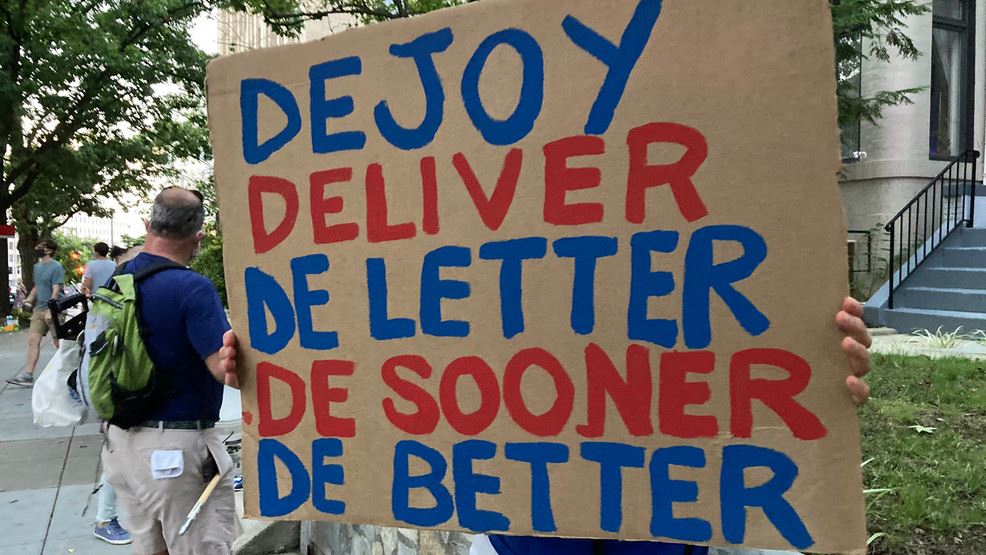 DEJOY
DELIVER
DE LETTER
DE SOONER
DE BETTER